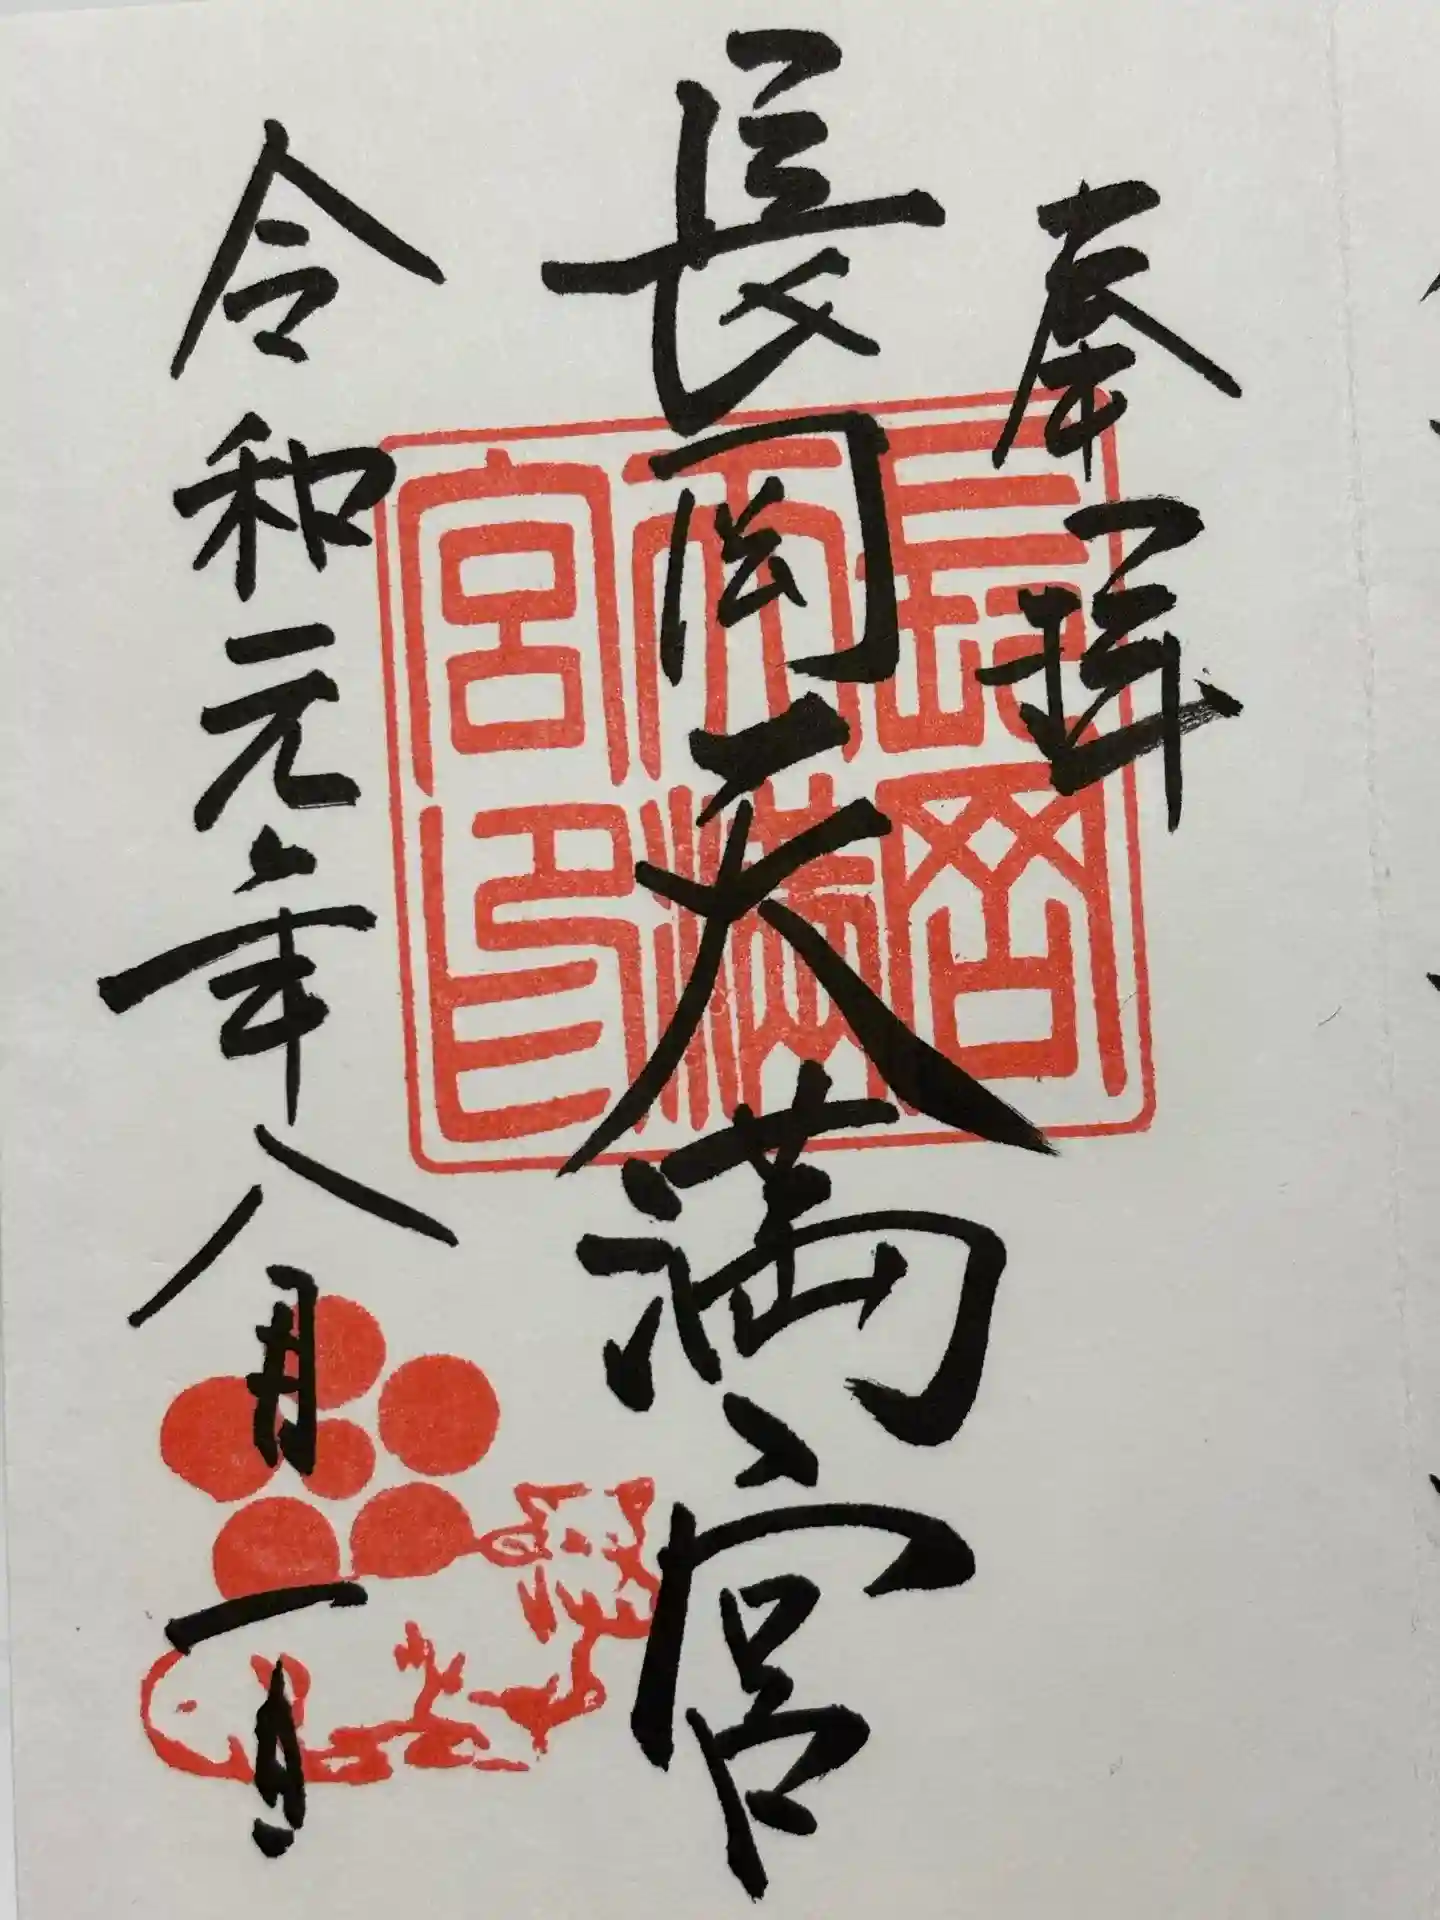 奉拝
長岡天満宮
令和元年八月一日
長岡
天満
宮印